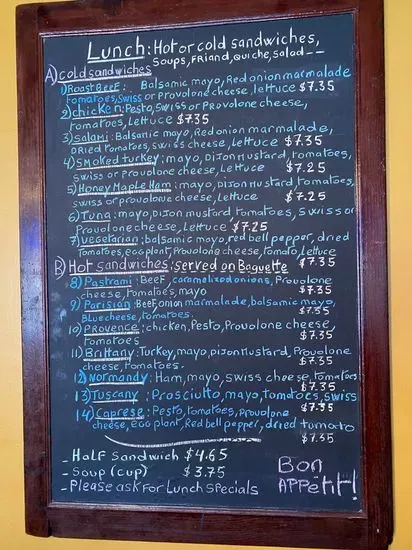 Lunch: Hot or cold sandwiches,
Soups, Friand, Quiche, Salad --
A) cold sandwiches
1) Roast Beef: Balsamic mayo, Red onion marmalade
tomatoes, Swiss or Provolone cheese, lettuce $7.35
2) chicken: Pesto, Swiss or Provolone cheese,
tomatoes, Lettuce $7.35
3) Salami: Balsamic mayo, Red onion marmalade,
DRied tomatoes, Swiss cheese, lettuce $7.35
4) Smoked turkey: mayo, Dijon mustard, tomatoes,
swiss or provolone cheese, lettuce $7.25
5) Honey Maple Ham: mayo, Dijon mustard, tomatoes,
swiss or provolone cheese, Lettuce $7.25
6) Tuna: mayo, Dijon mustard, tomatoes, Swiss or
Provolone cheese, Lettuce $7.25
7) vegetarian: balsamic mayo, red bell pepper, dried
Tomatoes, eggplant, provolone cheese, Tomato, lettuce
$7.35
B) Hot sandwiches: served on Baguette
8) Pastrami: Beef, caramelized onions, Provolone
cheese, Tomatoes, mayo $7.35
9) Parisian: Beef, onion marmalade, balsamic mayo,
Blue cheese, tomatoes. $7.35
10) Provence: chicken, Pesto, Provolone cheese,
tomatoes $7.35
11) Brittany: Turkey, mayo, Dijon mustard, Provolone
cheese, tomatoes. $7.35
12) Normandy: Ham, mayo, swiss cheese, tomatoes
$7.35
13) Tuscany: Prosciutto, mayo, tomatoes, swiss
$7.35
14) Caprese: Pesto, tomatoes, provolone
cheese, egg plant, Red bell pepper, dried tomato
$7.35
- Half Sandwich $4.65
- Soup (cup) $3.75
- Please ask for Lunch Specials
Bon
APPétit!